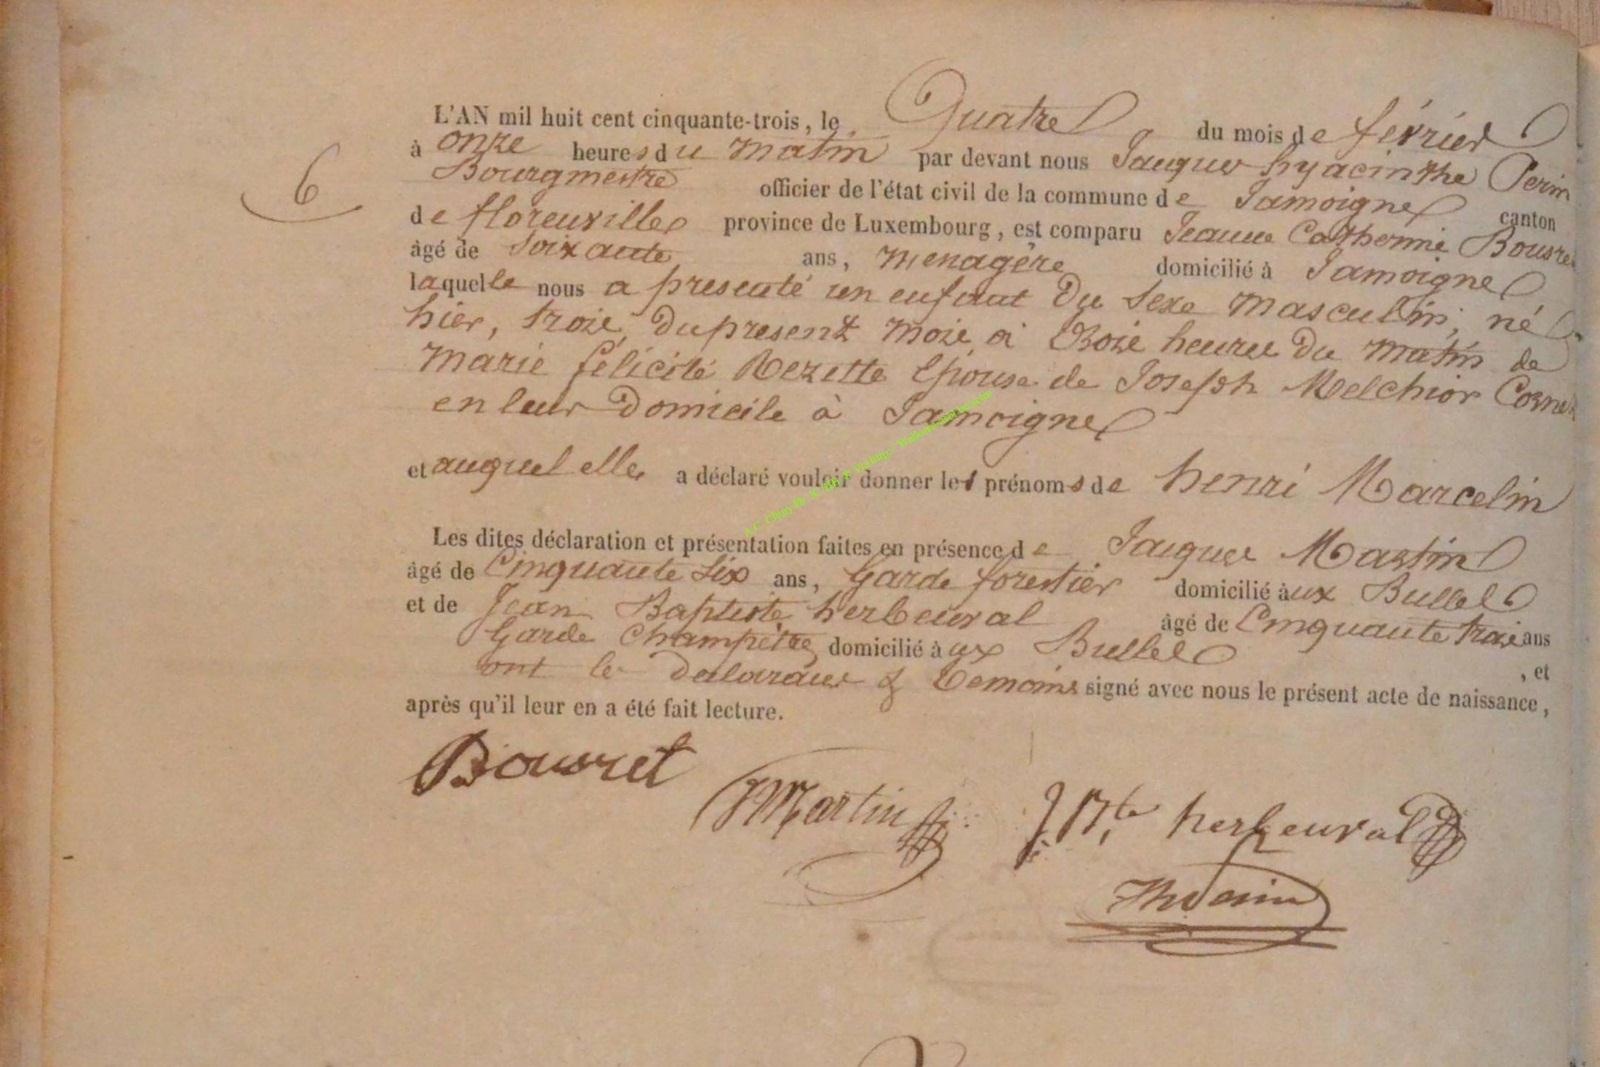 L'AN mil huit cent cinquante-trois, le Quatre du mois de février
à onze heures du matin par devant nous Jauques hyacinthe Perin
6
Bourgmestre officier de l'état civil de la commune de Jamoigne canton
de florenville province de Luxembourg, est comparu Jeanne Catherine Bousret
âgé de Soixante ans, menagère domicilié à Jamoigne
laquelle nous a presenté un enfant du sexe masculin, né
hier, trois, du present mois à trois heures du matin de
marie félicité Rezette Epouse de Joseph Melchior Cornet
en leur Domicile à Jamoigne
et auquel elle a déclaré vouloir donner les prénoms de henri Marcelin
Les dites déclaration et présentation faites en présence de Jauques Martin
âgé de Cinquante six ans, Garde forestier domicilié aux Bulles
et de Jean Baptiste herbeuval âgé de Cinquante trois ans
Garde Champêtre domicilié aux Bulles , et
ont les declarans & temoins signé avec nous le présent acte de naissance,
après qu'il leur en a été fait lecture.
Bousret
JMartin J Bte herbeuval
JhPerin